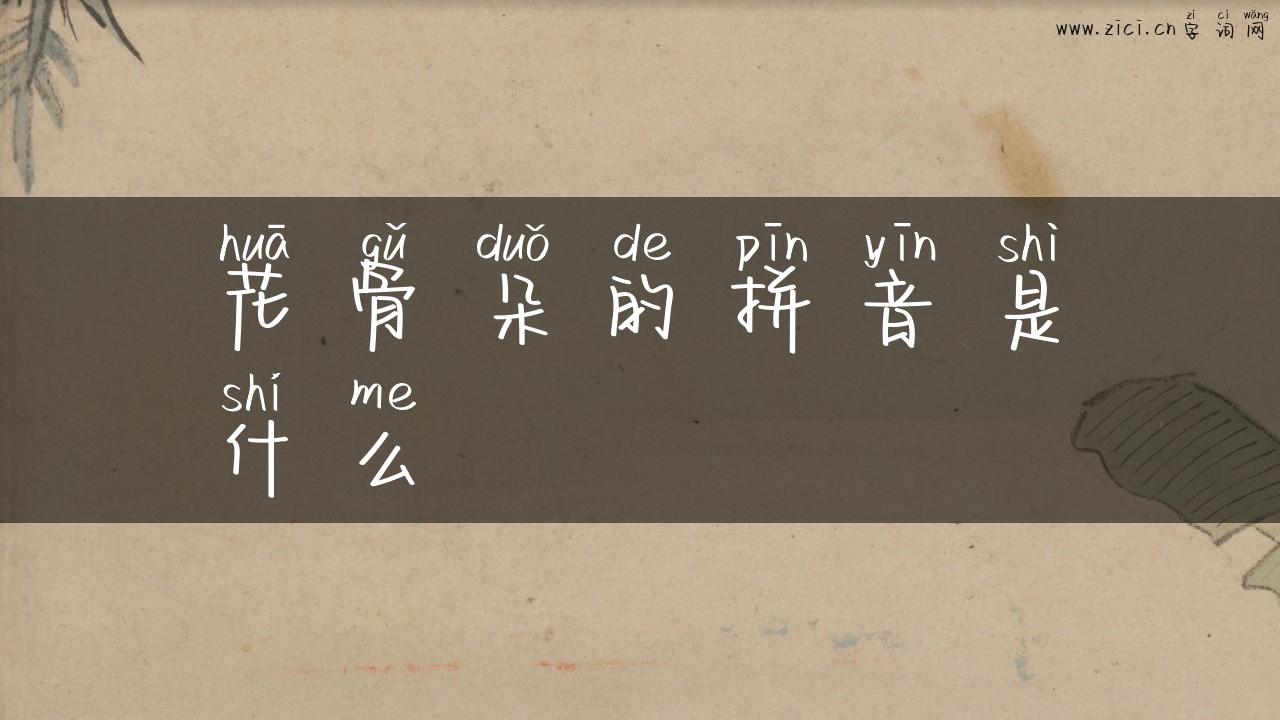 zì cí wǎng
www.zici.cn 字词网
huā gǔ duǒ de pīn yīn shì
花骨朵的拼音是
shí me
什么